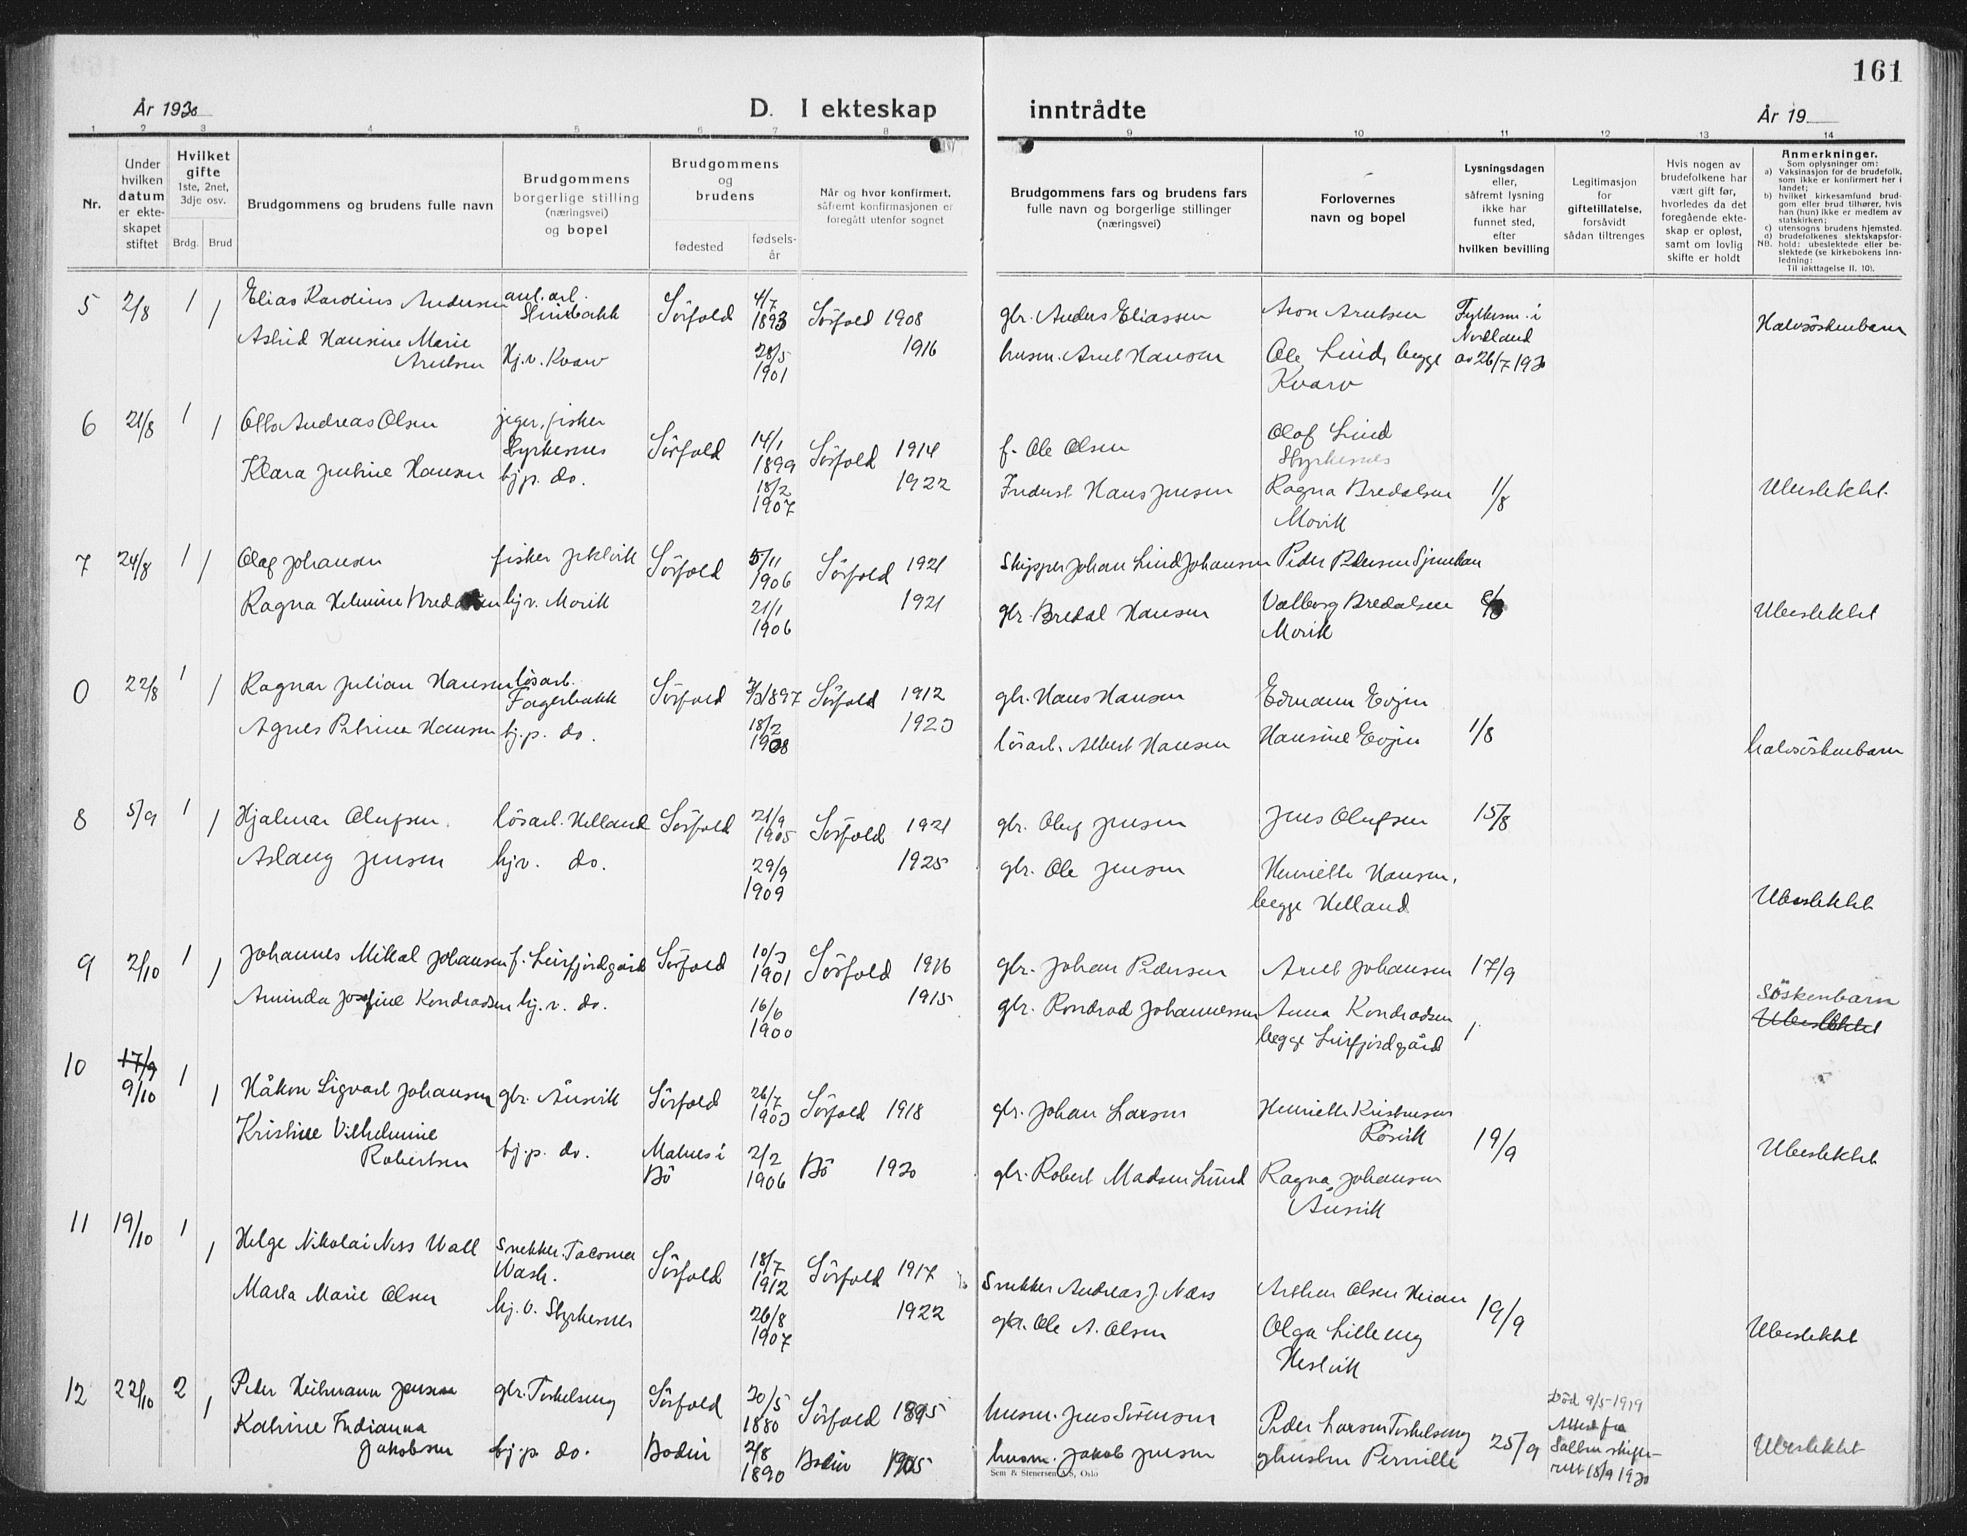 161
År 1930
D. I ekteskap inntrådte
År 19
1 2 3 4 5 6 7 8 9 10 11 12 13 14
Nr.
Under hvilken datum er ekteskapet stiftet
Hvilket gifte
1ste, 2net, 3dje osv.
Brdg. Brud
Brudgommens og brudens fulle navn
Brudgommens borgerlige stilling (næringsvei) og bopel
Brudgommens og brudens
fødested
fødselsår
Når og hvor konfirmert, såfremt konfirmasjonen er foregått utenfor sognet
Brudgommens fars og brudens fars fulle navn og borgerlige stillinger (næringsvei)
Forlovernes navn og bopel
Lysningsdagen eller, såfremt lysning ikke har funnet sted, efter hvilken bevilling
Legitimasjon for giftetillatelse, forsåvidt sådan tiltrenges
Hvis nogen av brudefolkene har vært gift før, hvorledes da det foregående ekteskap er opløst, samt om lovlig skifte er holdt
Anmerkninger.
Som oplysninger om:
a) Vaksinasjon for de brudefolk, som ikke er konfirmert her i landet;
b) hvilket kirkesamfund brudgom eller brud tilhører, hvis han (hun) ikke er medlem av statskirken;
c) utensogns brudens hjemsted.
d) brudefolkenes slektskapsforhold: ubeslektede eller beslektede (se kirkebokens innledning:
NB.
Til iakttagelse II. 10).
5 2/8 1 1 Elias Kardius Andersen Sørfold 4/7 1893 Sørfold 1908 gbr. Anders Eliassen Aron Arntsen Fylkesm. i Nordland av 26/7 1930 Halvsöskenbarn
Astrid Hansine Marie Arntsen Hj. v. Kvarv 28/5 1901 1916 husm. Arnt Hansen Ole Lind, begge Kvarv
6 21/8 1 1 Otto Andreas Olsen jeger, fisker Styrkesnes Sørfold 14/1 1899 Sørfold 1914 f. Ole Olsen Olaf Lind Styrkesnes
Klara Justine Hansen hj.p. do. 18/2 1907 1922 Hans Jensen Ragna Bredalsen Movik 1/8 Ubeslektet.
7 24/8 1 1 Olaf Johansen fisker Sørfold 5/11 1906 Sørfold 1921 Skipper Johan Lind Johansen Peder Pedersen
Ragna Helmine hj v. Movik 21/1 1906 1921 gbr. Bredal Hansen Valborg Bredalsen Movik Ubeslektet
0 22/8 1 1 Ragnar Julian Hansen lösarb. Fagerbakk Sørfold 1897 Sørfold 1912 gbr. Hans Hansen Edmann Evjen
Agnes Petrine Hansen hj.p. do. 18/2 1908 1923 lösarb. Albert Hansen Hansine Evjen 1/8 halvsöskenbarn
8 5/9 1 1 Hjalmar Olufsen. lösarb. Helland Sørfold 21/9 1905 Sørfold 1921 gbr. Oluf Jensen Jens Olufsen 15/8
Aslaug Jensen hj v. do. 29/9 1909 1925 gbr. Ole Jensen Henriette Hansen, begge Helland Ubeslektet
9 2/10 1 1 Johannes Mikal Johansen f. Leirfjordgård Sørfold 10/3 1901 Sørfold 1916 gbr. Johan Pedersen Arnt Johansen 17/9
Aminda Josefine Kondradsen hj. v. do. 16/6 1900 1915 gbr. Kondrad Johannessen Anna Kondradsen begge Leirfjordgård söskenbarn Ubeslektet
10 17/9 9/10 1 1 Håkon Sigvart Johansen gbr. Ånsvik Sørfold 26/7 1903 Sørfold 1918 gbr. Johan Larsen Henriette Kristensen Rösvik 19/9
Kristine Vilhelmine Robertsen hj.p. do. Malnes i Bö 2/2 1906 Bö 1920 gbr. Robert Madsen Lund Ragna Johansen Ånsvik Ubeslektet
11 19/10 1 1 Helge Nikolai Ness Wall Snekker. Tacoma Wash. Sørfold 18/7 1912 Sørfold 1917 Snekker Andreas J. Næss Arthur Olsen
Marta Marie Olsen hj. v. Styrkesnes 26/8 1907 1922 gbr. Ole A. Olsen Olga Lilleeng 19/9 Ubeslektet
12 22/10 2 1 Peder Heitmann Jensen gbr. Torkelseng Sørfold 30/5 1880 Sørfold 1895 husm. Jens Sörensen Peder Larsen Torkelseng Död 9/5-1919
Katrine Indianna Jakobsen hj.p. do. Bodin 2/8 1890 Bodin 1905 husm. Jakob Jensen ghustru Pernille 25/9 Attest fra Salten skifterett 18/9 1930 Ubeslektet
Sem & Stenersen A/S, Oslo